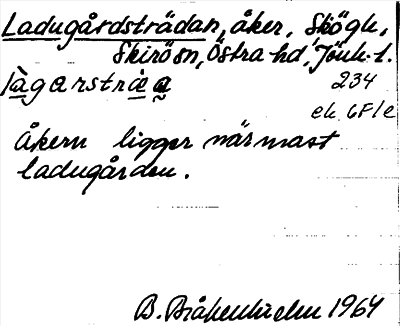 Ladugårdsträdan, åker, Skögle,
Skirö sn, Östra hd, Jönk. l.
234
ek. 6F1e
Åkern ligger närmast
ladugården.
1964